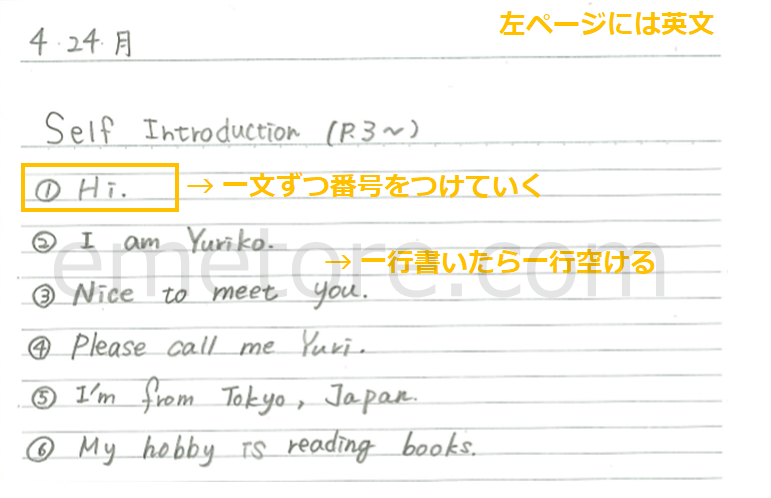 左ページには英文
4.24.月
Self Introduction (P.3～)
① Hi. → 一文ずつ番号をつけていく
② I am Yuriko.
→ 一行書いたら一行空ける
emetore.com
③ Nice to meet you.
④ Please call me Yuri.
⑤ I'm from Tokyo, Japan.
⑥ My hobby is reading books.